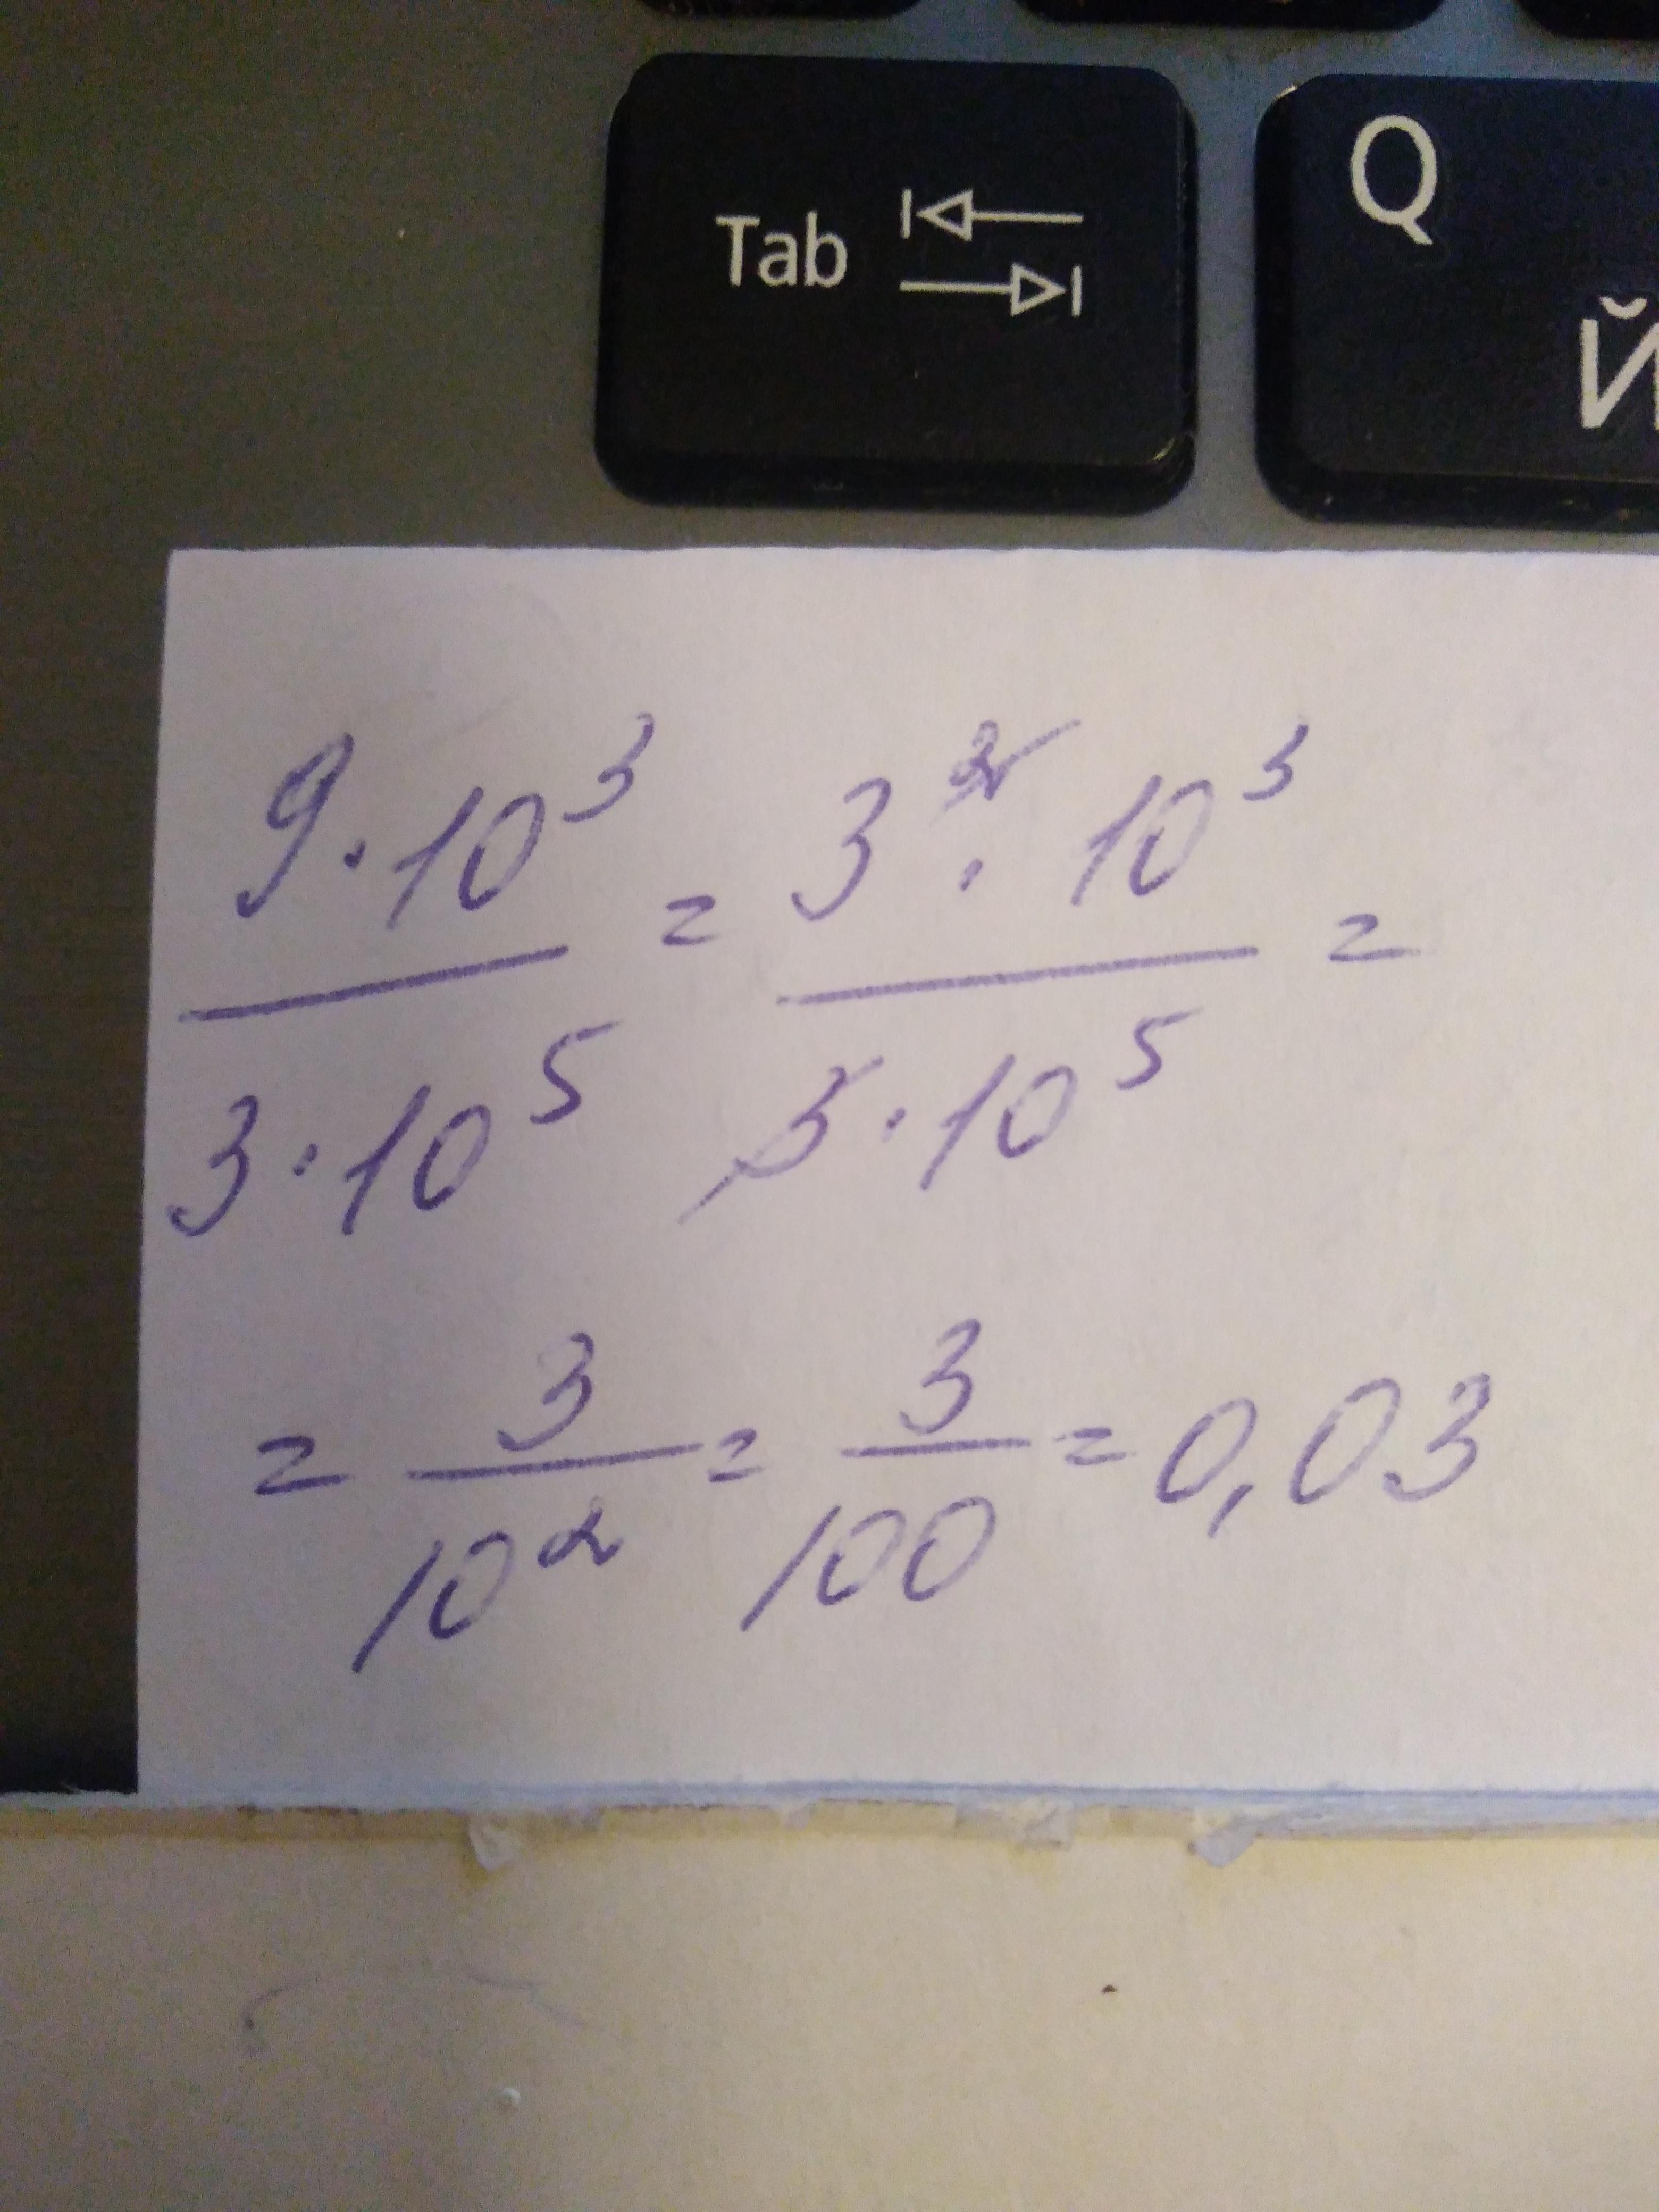 Tab
Q
Й
9·10³/3·10⁵ = 3²·10³/3·10⁵ =
= 3/10² = 3/100 = 0,03